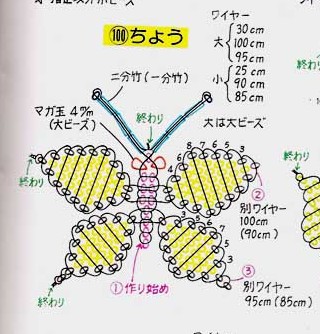 ⑩⓪ちょう
ワイヤー
大 30cm
100cm
95cm
小 25cm
90cm
85cm
二分竹(一分竹)
マガ玉 4㎜
(大ビーズ)
終わり
大は大ビーズ
4 6 8 7 6 5 3
終わり
終わり
②
別ワイヤー
100cm
(90cm)
①作り始め
3 6 7 5 3
③
終わり
別ワイヤー
95cm (85cm)